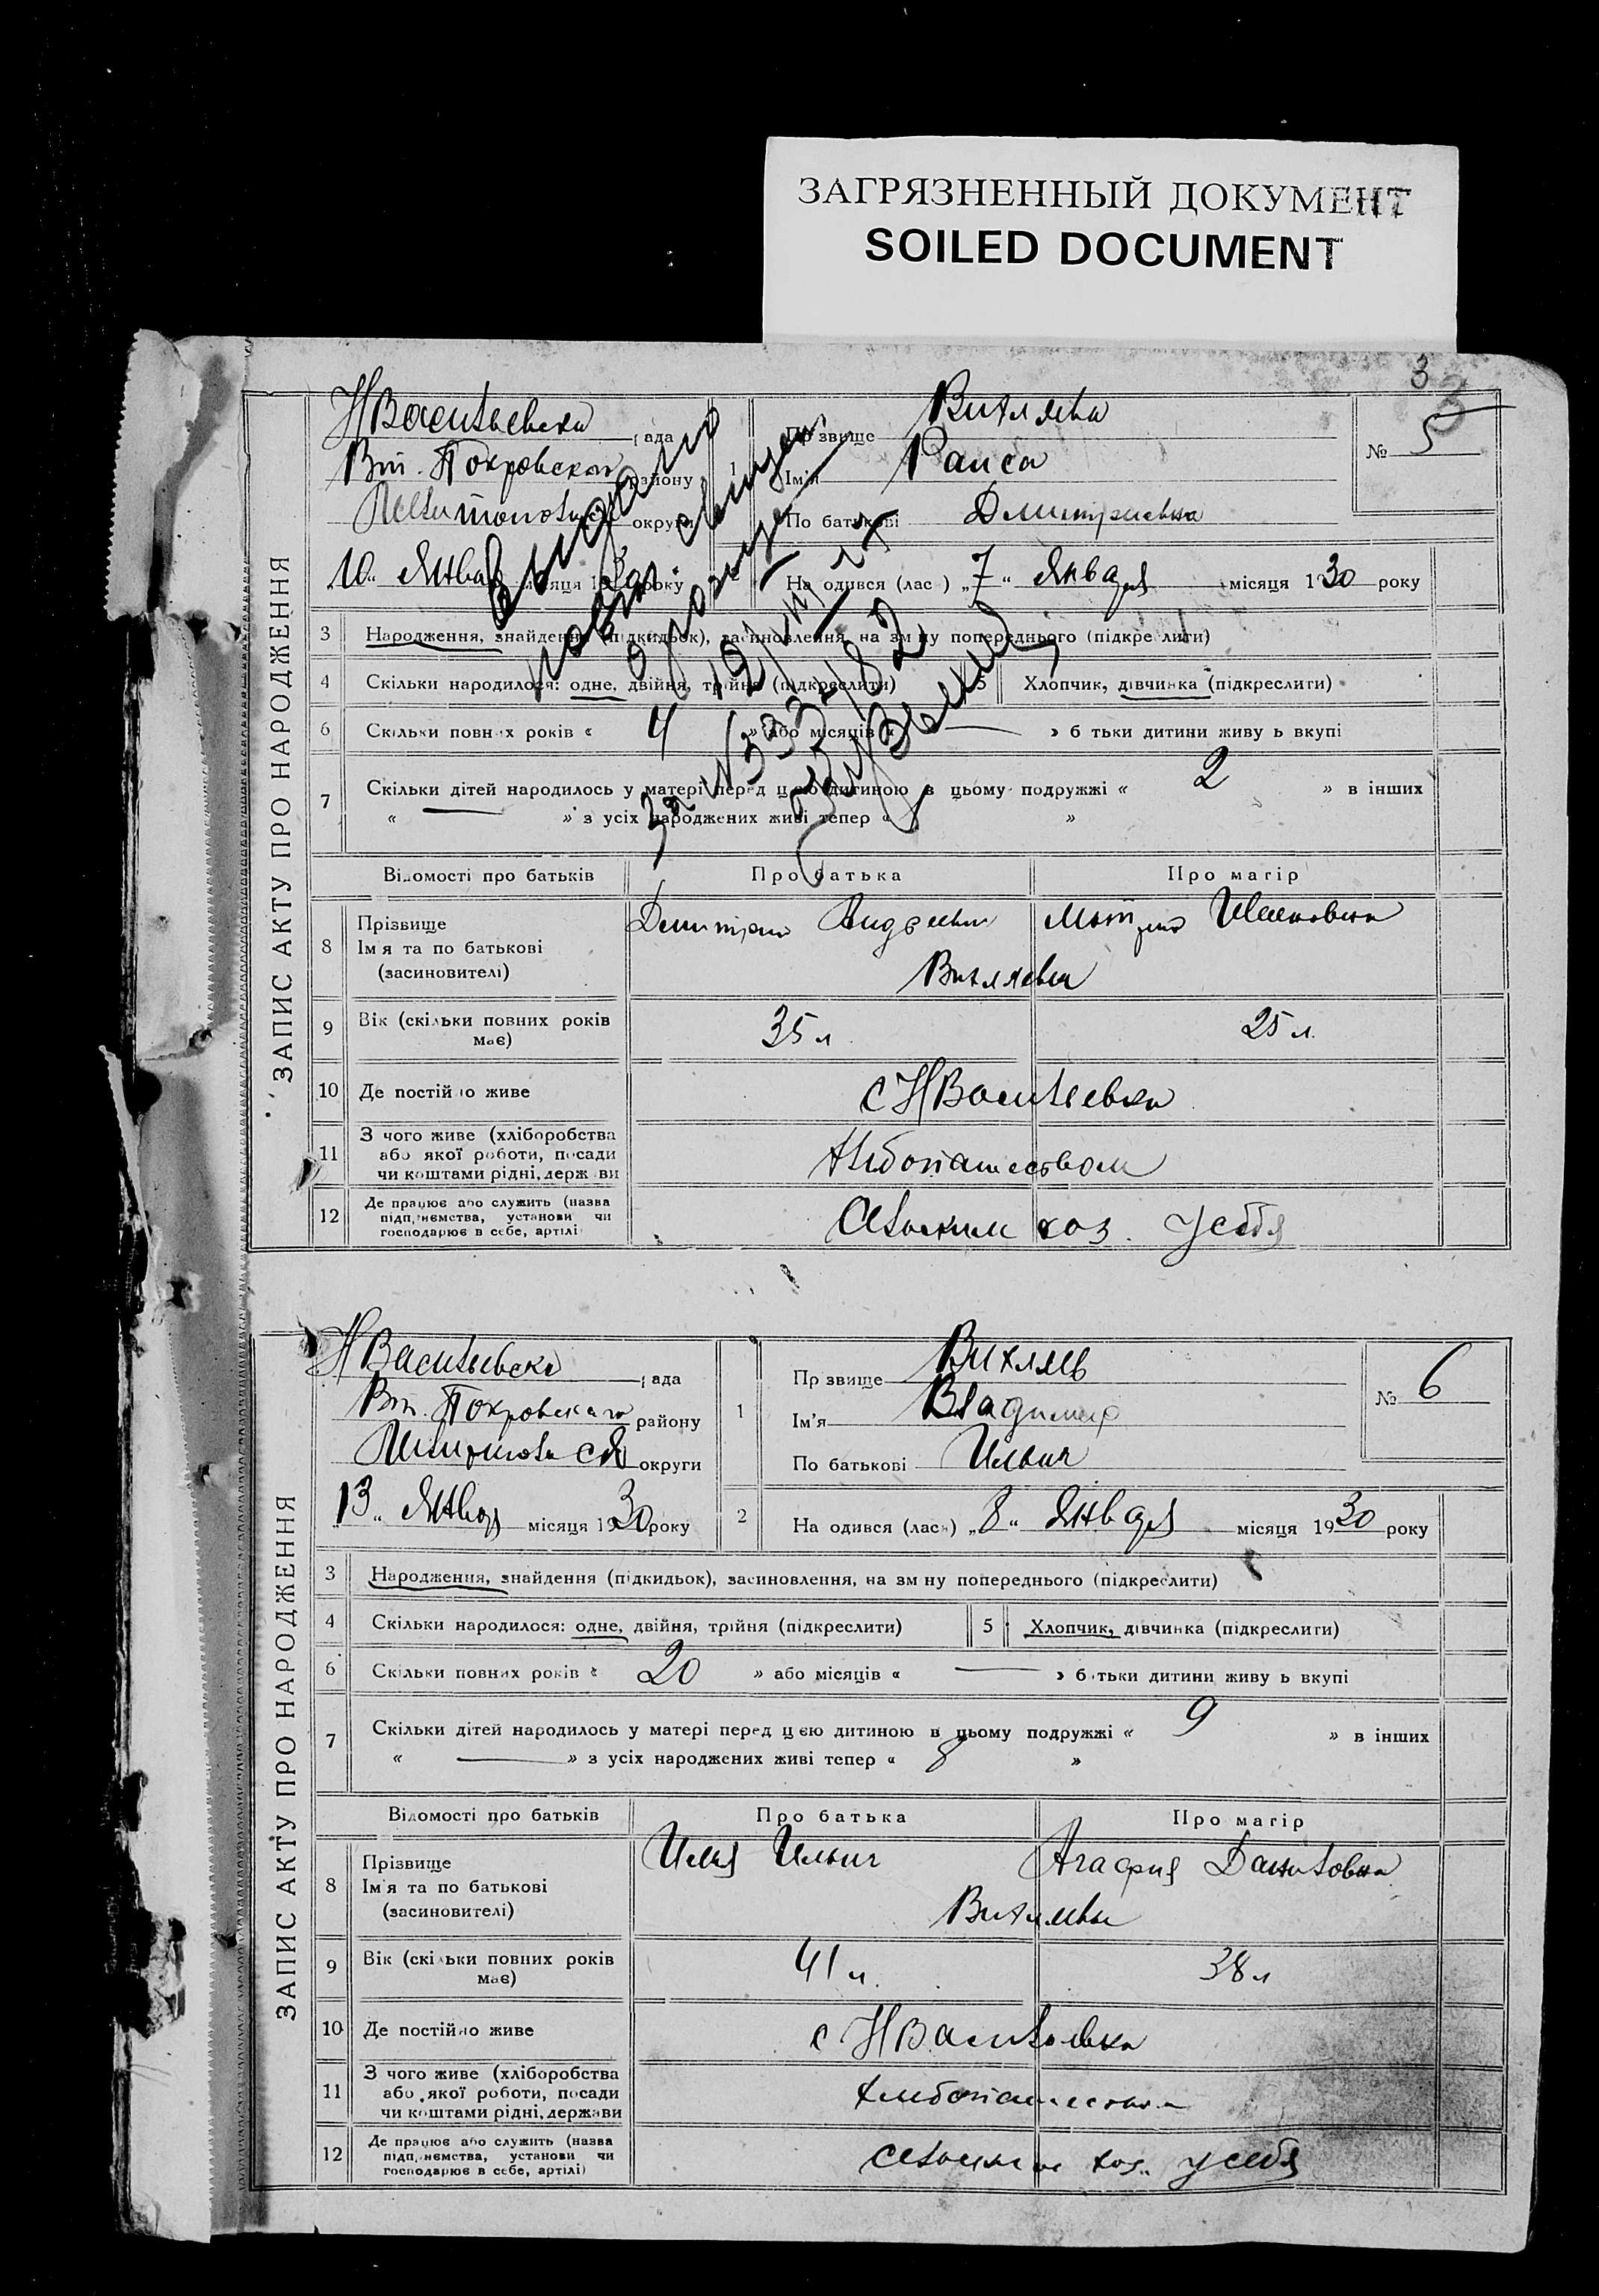 ЗАГРЯЗНЕННЫЙ ДОКУМЕНТ
SOILED DOCUMENT
3
3
ЗАПИС АКТУ ПРО НАРОДЖЕННЯ
НВасильевска рада
Вт. Покровского району
округи
"10" Января місяця 1930 року
1
Прізвище Вихляева
Ім'я Раиса
По батькові Дмитриевна
№ 5
2
На одився (лас ) "7" Января місяця 1930 року
выдано
повтор. свидет.
о рожден
за № 333182
3 Народження, знайдення (підкидьок), засиновлення, на зм ну попереднього (підкреслити)
4 Скільки народилося: одне, двійня, трійня (підкреслити)
5 Хлопчик, дівчинка (підкреслити)
6 Скільки повних років « 4 » або місяців « — » б тьки дитини живу ь вкупі
7 Скільки дітей народилось у матері перед цією дитиною в цьому подружжі « 2 » в інших
« — » з усіх народжених живі тепер « »
Відомості про батьків Про батька Про матір
8 Прізвище Ім'я та по батькові (засиновителі)
Дмитрий Андреевич
Вихляевы
9 Вік (скільки повних років має) 35 л. 25 л.
10 Де постійно живе с НВасильевка
11 З чого живе (хліборобства або якої роботи, посади чи коштами рідні, держави
Хлебопашеством
12 Де працює або служить (назва підприємства, установи чи господарює в себе, артілі)
Сельским хоз. у себя
ЗАПИС АКТУ ПРО НАРОДЖЕННЯ
НВасильевска рада
Вт. Покровского району
округи
"13" Января місяця 1930 року
1
Пр звище Вихляев
Ім'я Владимир
По батькові Ильич
№ 6
2
На одився (лась) "8" Января місяця 1930 року
3 Народження, знайдення (підкидьок), засиновлення, на зм ну попереднього (підкреслити)
4 Скільки народилося: одне, двійня, трійня (підкреслити)
5 Хлопчик, дівчинка (підкреслити)
6 Скільки повних років « 20 » або місяців « — » б тьки дитини живу ь вкупі
7 Скільки дітей народилось у матері перед цією дитиною в цьому подружжі « 9 » в інших
« — » з усіх народжених живі тепер « 8 »
Відомості про батьків Про батька Про матір
8 Прізвище Ім'я та по батькові (засиновителі)
Илья Ильич Агафия Даниловна
Вихляевы
9 Вік (скільки повних років має) 41 л. 38 л
10 Де постійно живе с НВасильевка
11 З чого живе (хліборобства або якої роботи, посади чи коштами рідні, держави
Хлебопашеством
12 Де працює або служить (назва підприємства, установи чи господарює в себе, артілі)
Сельским хоз. у себя